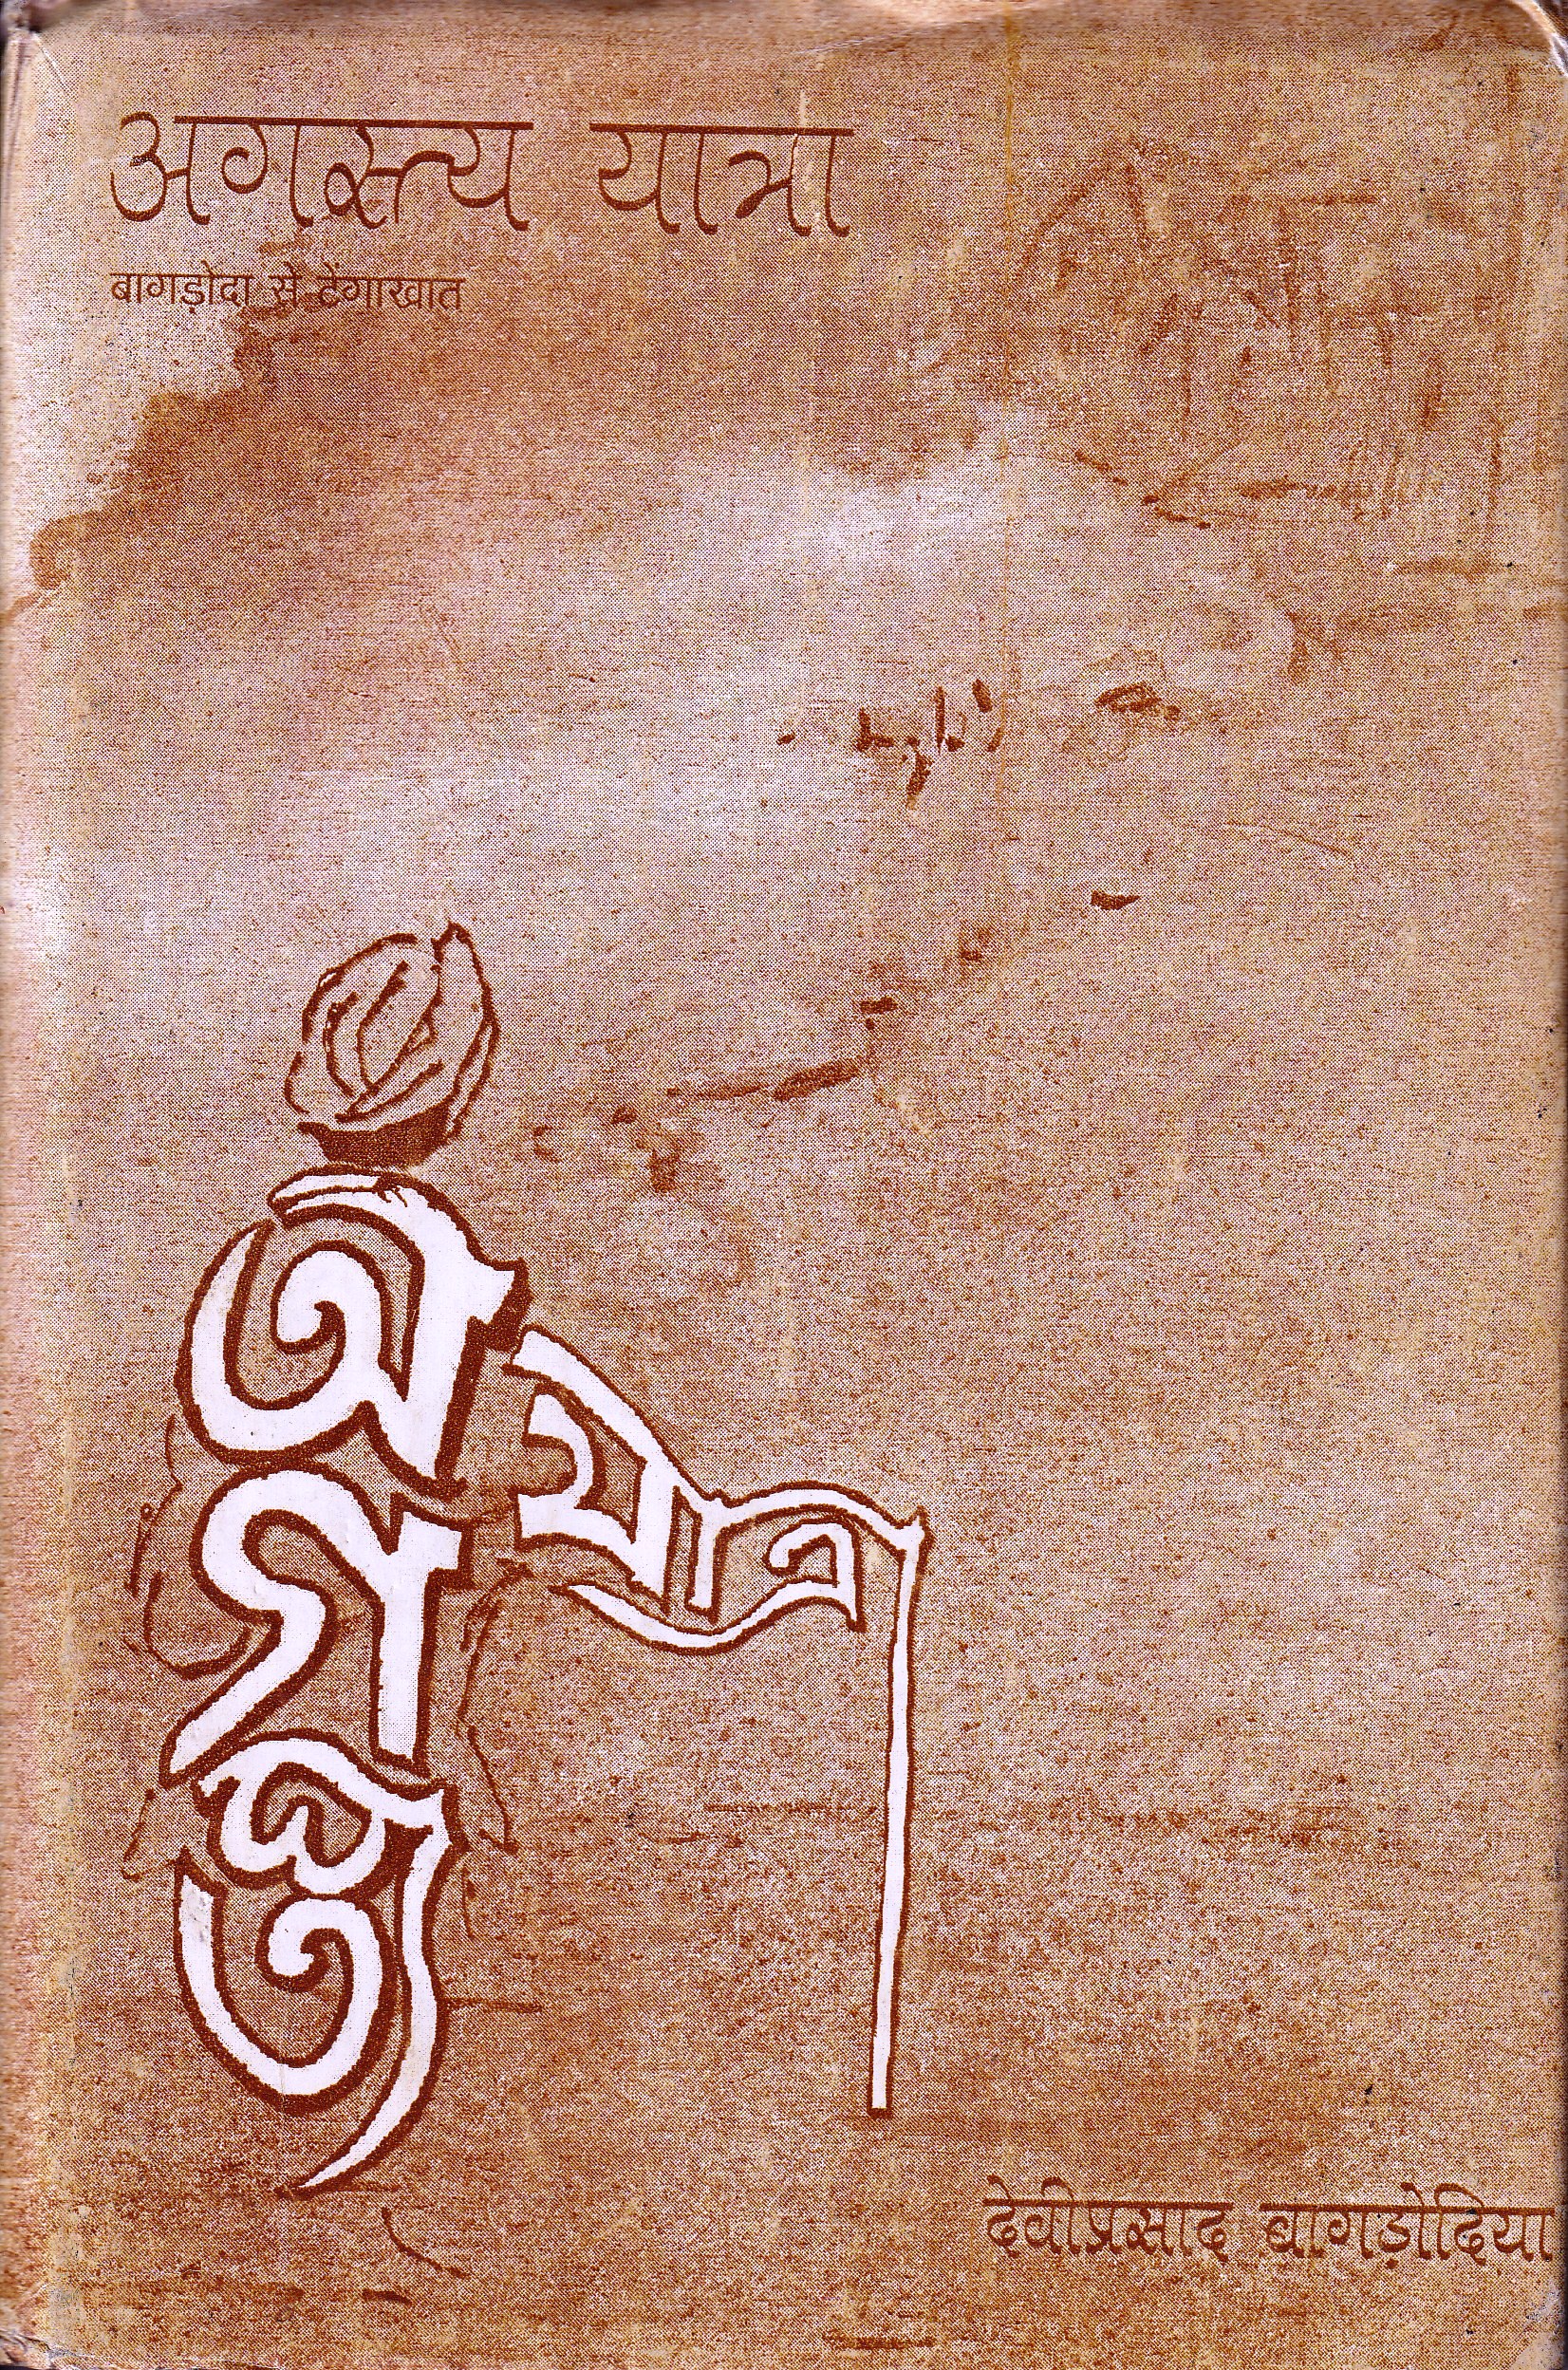 अगस्त्य यात्रा
बागड़ोदा से टेंगाखात
অগস্ত্য
যাত্ৰা
देवीप्रसाद बागड़ोदिया